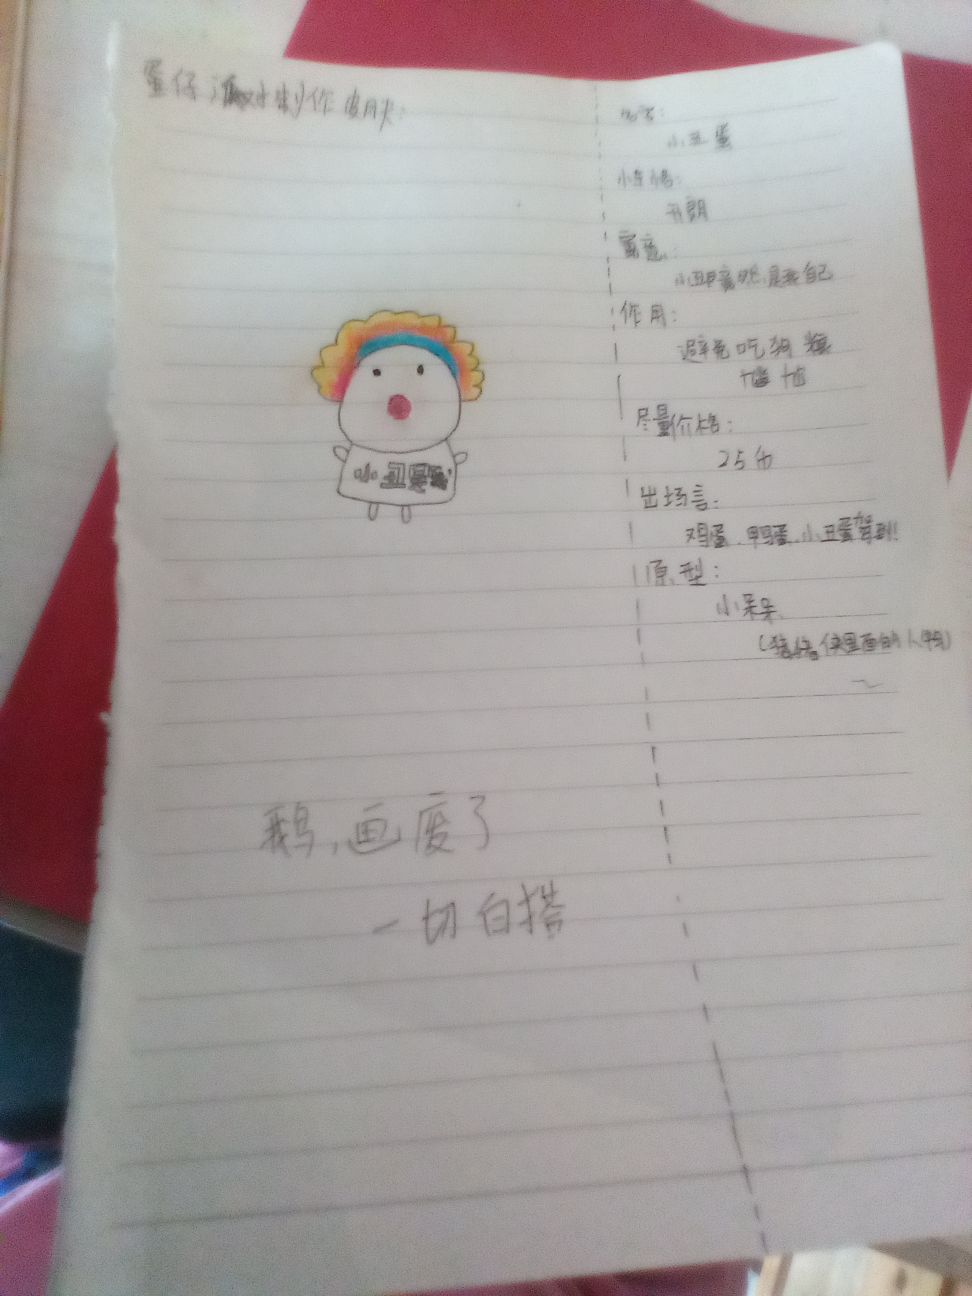 蛋仔派对制作皮肤:
名字:
小丑蛋
性格:
开朗
寓意:
小丑竟然是我自己
作用:
避免吃狗粮
尴尬
尽量价格:
25币
出场言:
鸡蛋、鸭蛋、小丑蛋驾到!
原型:
小呆呆
(猪猪侠里面的人物)
小丑是我
鹅,画废了
一切白搭